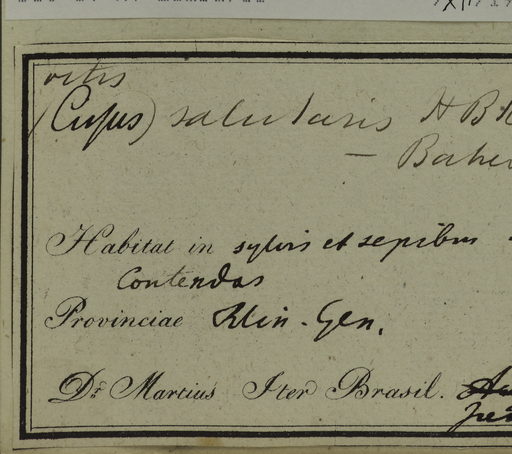 vitis
(Cissus) salutaris HBK
— Baker
Habitat in sylvis et sepibus
Contendas
Provinciae Min. Gen.
Dr. Martius Iter Brasil.